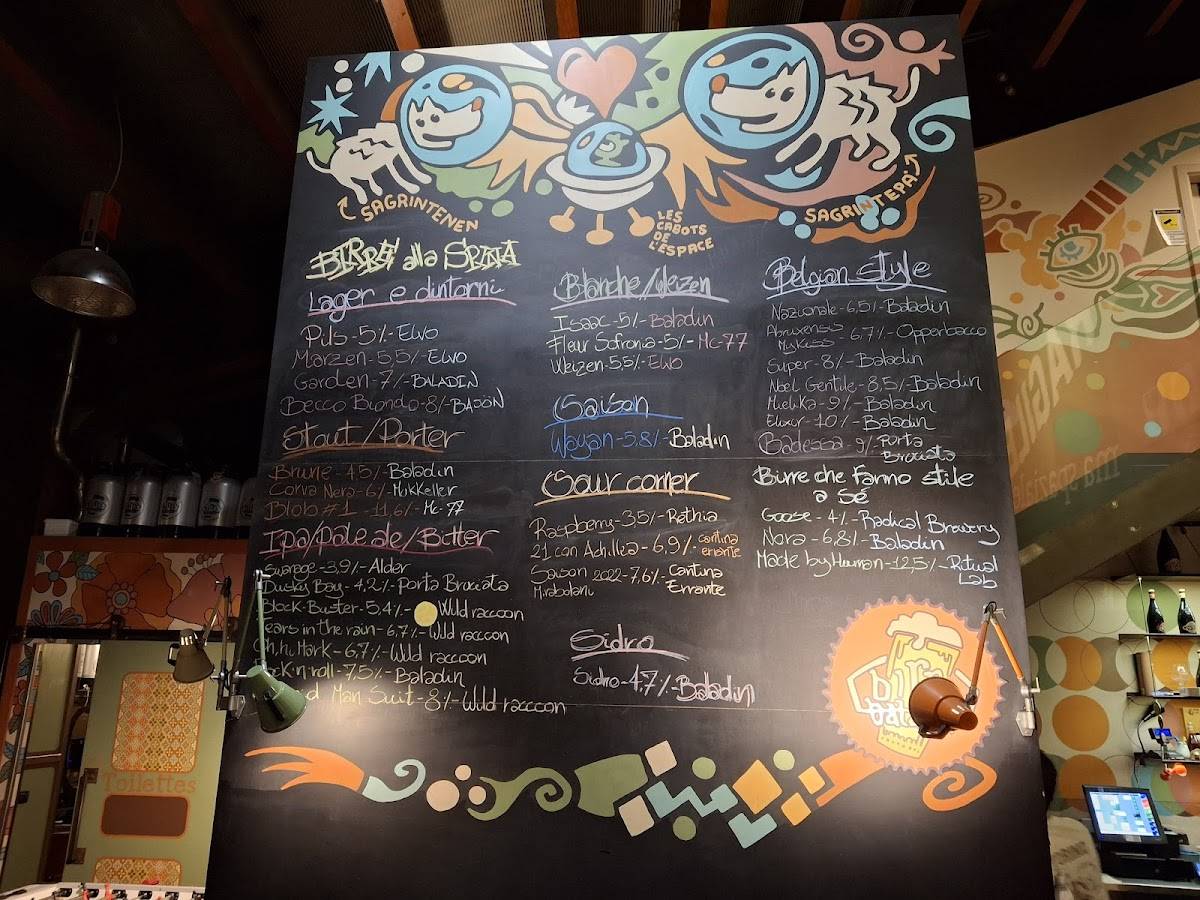 SAGRINTENEN
LES
CABOTS
DE
L'ESPACE
SAGRINTEPA'
BIRRE alla SPINA
Lager e dintorni
Pils - 5% - Elvo
Marzen - 5,5% - Elvo
Garden - 7% - BALADIN
Becco Biondo - 8% - BAJÓN
Stout/Porter
Brune - 4,5% - Baladin
Corva Nera - 6% - Mikkeller
Blob #1 - 11,6% - Mc-77
Ipa/pale ale/Bitter
Swarage - 3,9% - Alder
Dusky Boy - 4,2% - Porta Bruciata
Block-Buster - 5,4% - Wild raccoon
ears in the rain - 6,7% - Wild raccoon
h, hi, Mark - 6,7% - Wild raccoon
ock'n'roll - 7,5% - Baladin
d Man Suit - 8% - Wild raccoon
Blanche/Weizen
Isaac - 5% - Baladin
Fleur Sofronia - 5% - Mc-77
Weizen - 5,5% - Elvo
Saison
Wayan - 5,8% - Baladin
Sour corner
Raspberry - 3,5% - Rethia
21 con Achillea - 6,9% - cantina
errante
Saison 2022 - 7,6% - Cantina
Mirabolani Errante
Sidro
Sidro - 4,7% - Baladin
Belgian style
Nazionale - 6,5% - Baladin
Abruxensis - 6,7% - Opperbacco
MyKiss
Super - 8% - Baladin
Noel Gentile - 8,5% - Baladin
Mielika - 9% - Baladin
Elixir - 10% - Baladin
Badessa - 9% - Porta
Bruciata
Birre che fanno stile
a sé
Goose - 4% - Radical Brewery
Nora - 6,8% - Baladin
Made by Human - 12,5% - Ritual
Lab
Toilettes